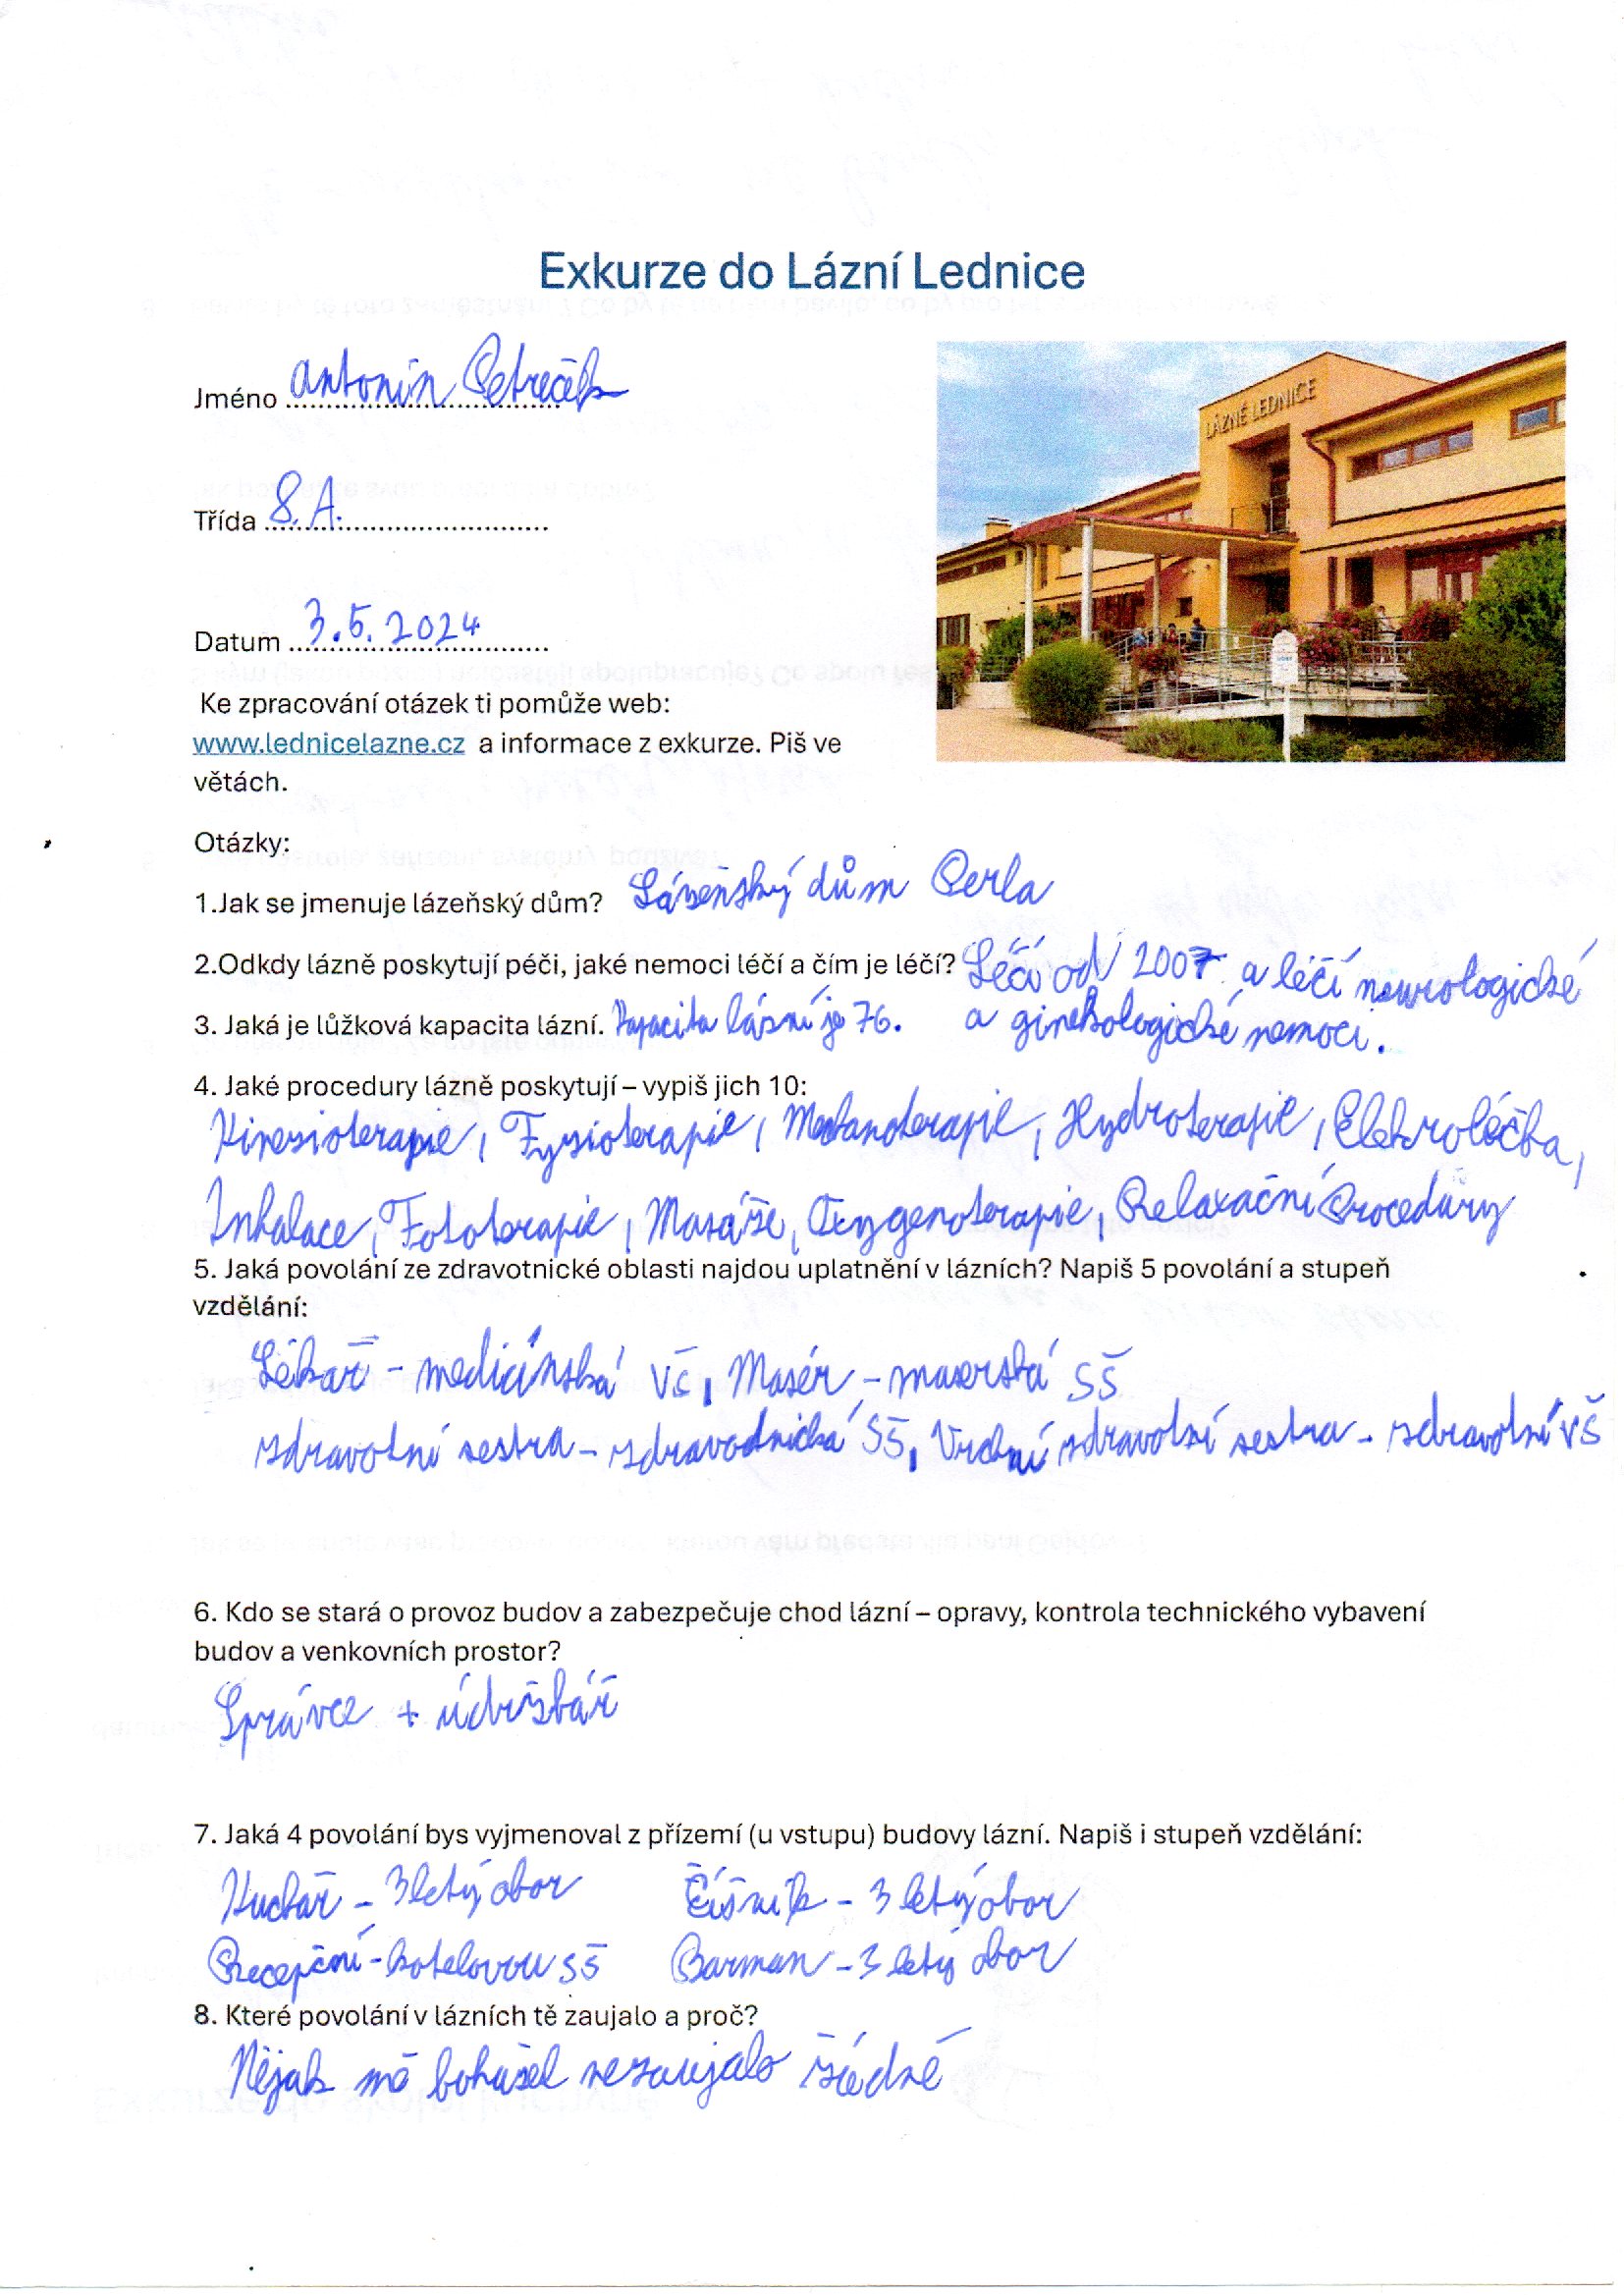 Exkurze do Lázní Lednice
Jméno Antonín Petreček
LÁZNĚ LEDNICE
Třída 8.A.
Datum 3.5.2024
Ke zpracování otázek ti pomůže web:
www.lednicelazne.cz a informace z exkurze. Piš ve
větách.
Otázky:
1.Jak se jmenuje lázeňský dům? Lázeňský dům Perla
2.Odkdy lázně poskytují péči, jaké nemoci léčí a čím je léčí? Léčí od 2007 a léčí neurologické
a ginekologické nemoci.
3. Jaká je lůžková kapacita lázní. Kapacita lázní je 76.
4. Jaké procedury lázně poskytují – vypiš jich 10:
Kinesioterapie, Fysioterapie, Mechanoterapie, Hydroterapie, Elektroléčba,
Inhalace, Fototerapie, Masáže, Oxygenoterapie, Relaxační Procedůry
5. Jaká povolání ze zdravotnické oblasti najdou uplatnění v lázních? Napiš 5 povolání a stupeň
vzdělání:
Lékař - medicínská VŠ, Masér - maserská SŠ
zdravotní sestra - zdravodnická SŠ, Vrchní zdravotní sestra - zdravotní VŠ
6. Kdo se stará o provoz budov a zabezpečuje chod lázní – opravy, kontrola technického vybavení
budov a venkovních prostor?
Správce + údržbář
7. Jaká 4 povolání bys vyjmenoval z přízemí (u vstupu) budovy lázní. Napiš i stupeň vzdělání:
Kuchař - 3letý obor Číšník - 3 letý obor
Recepční - hotelovou SŠ Barman - 3 letý obor
8. Které povolání v lázních tě zaujalo a proč?
Nějak mě bohužel nezaujalo žádné